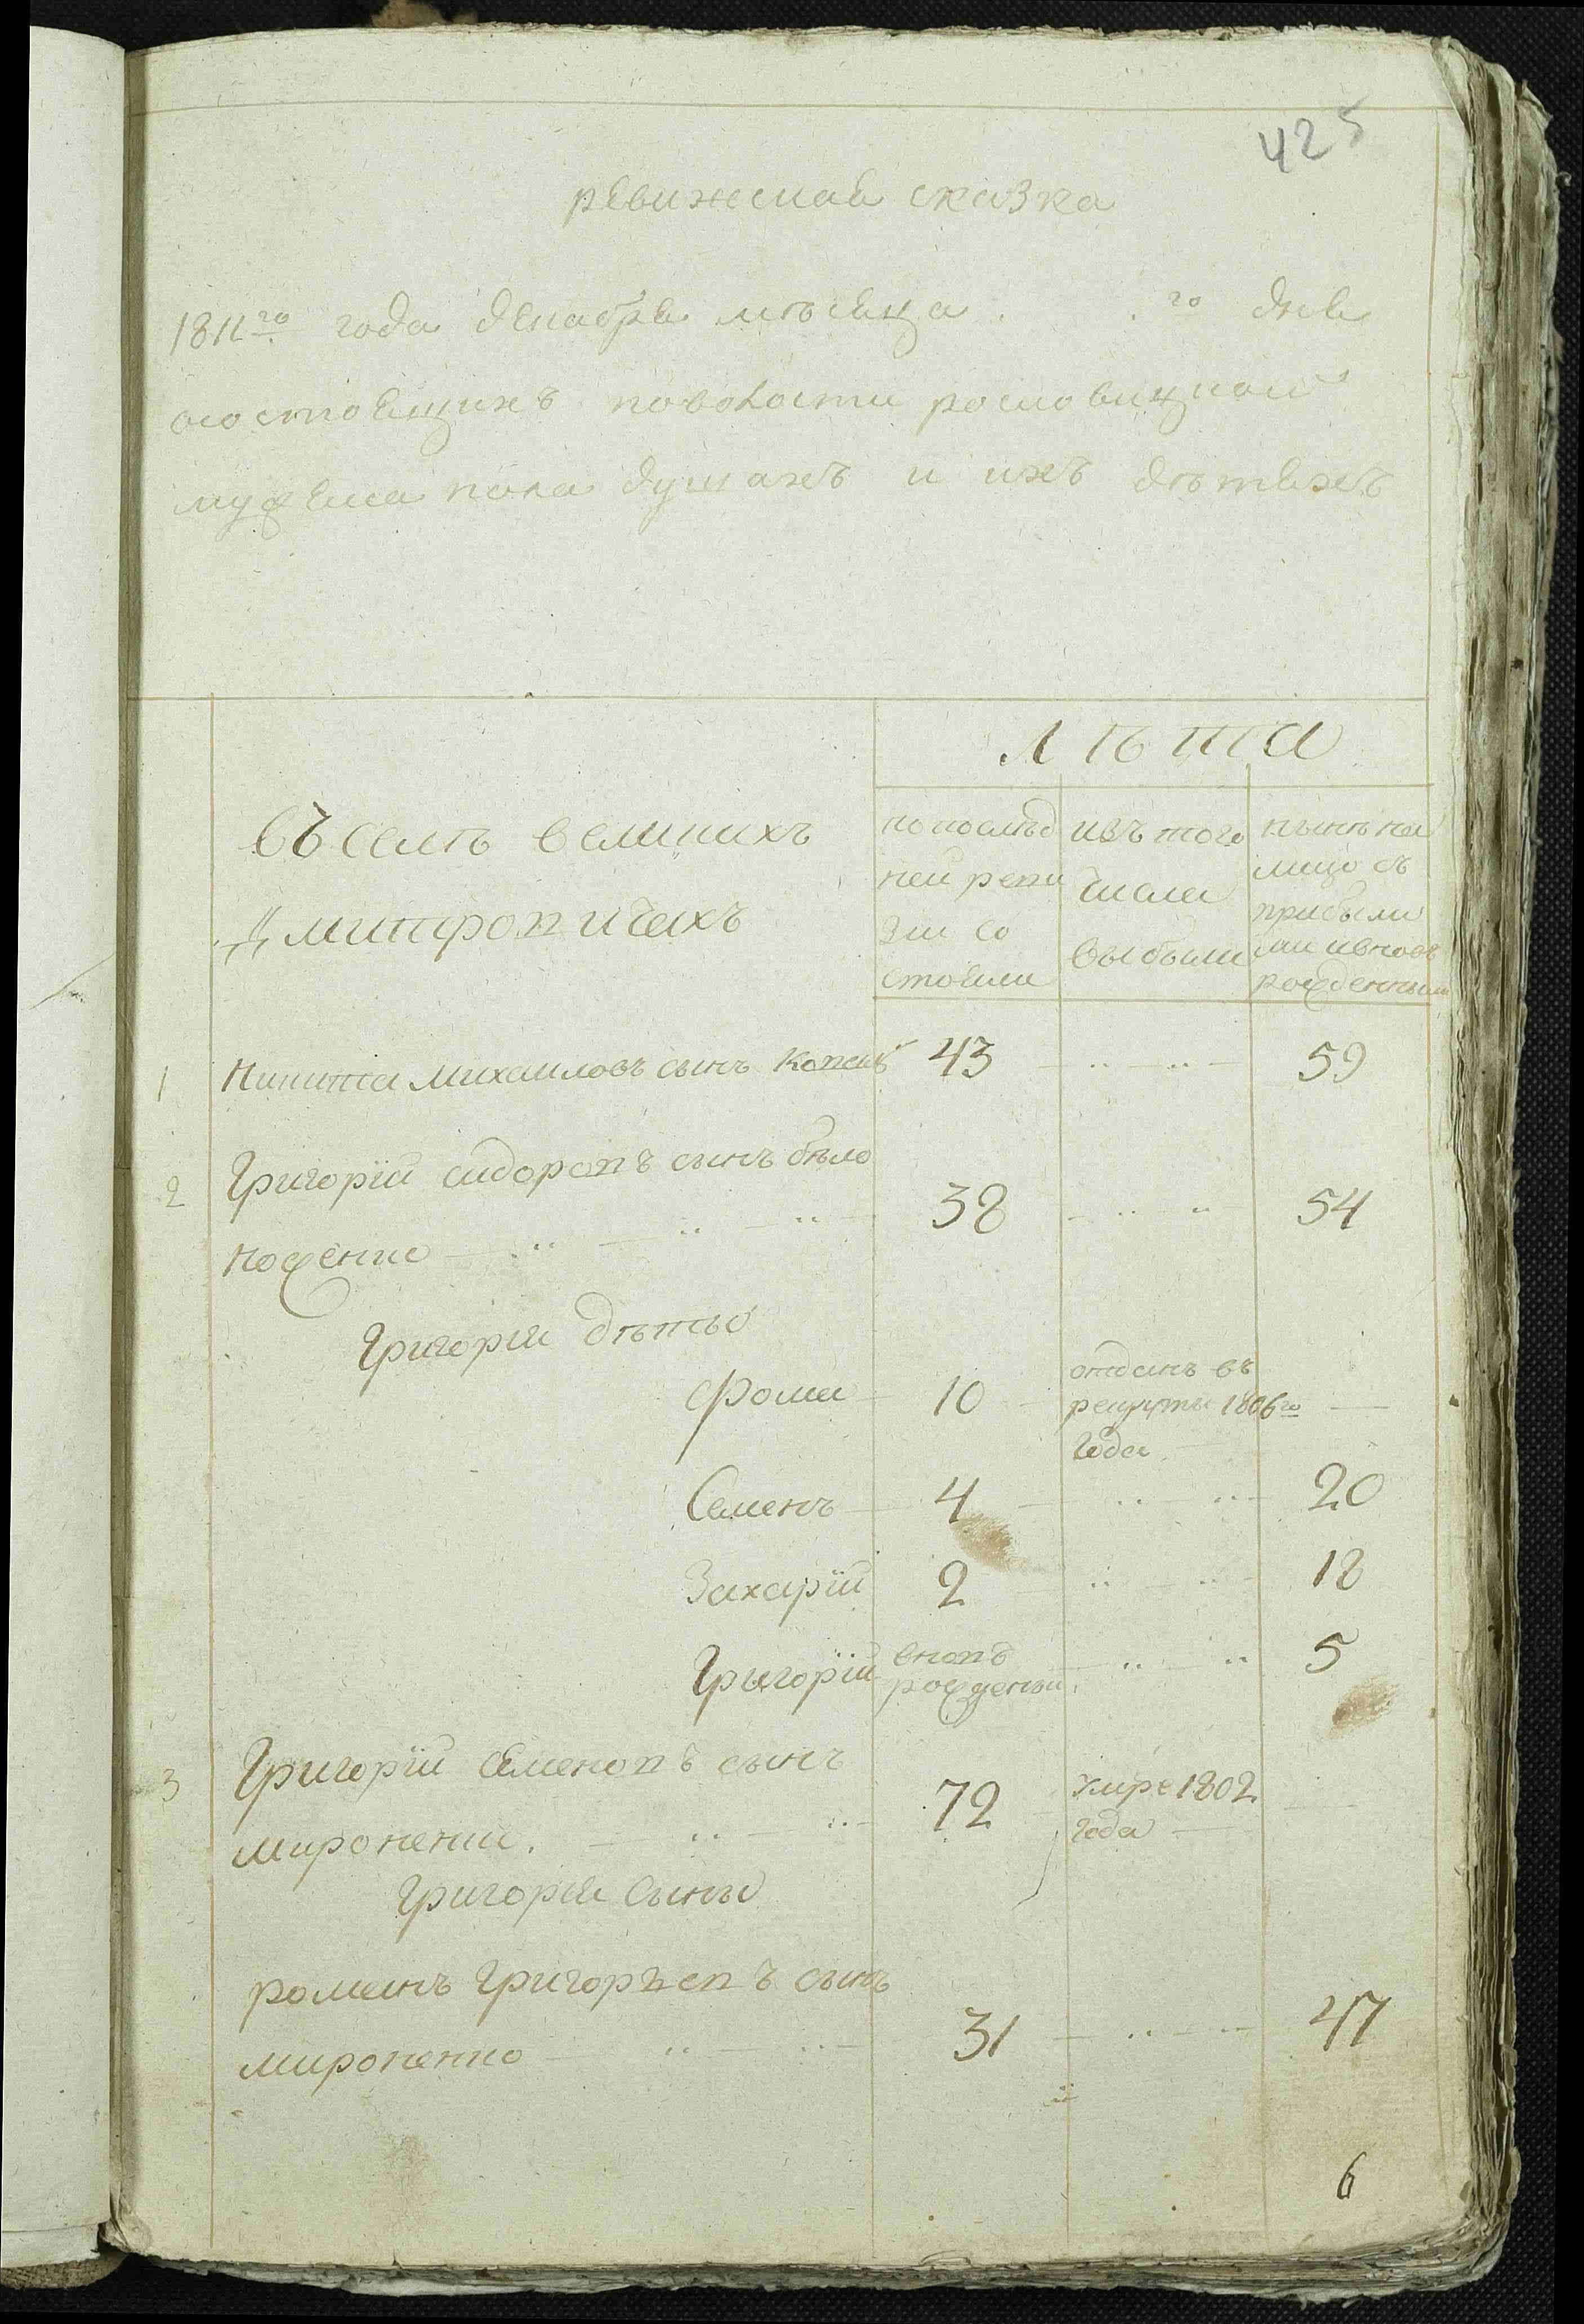 425
ревижская сказка
1811го года декабря мѣсяца . . го дня
осостоящихъ поволости
мужеска пола душахъ и ихъ дѣтяхъ
Лѣта
Въ селѣ великихъ
Дмитровичахъ
попослѣд
ней реви
зіи со
стояли
изъ того
числа
выбыли
нынѣ на
лицо съ
прибыли
ми ивновь
рожденными
1 Никита Михаиловъ сынъ 43 59
2 Григорій сидоровъ сынъ бѣло
ноженко 38 54
Григорія дѣти
Фома 10 отданъ въ
рекруты 1806го
года
Семенъ 4 20
Захарій 2 18
Григорій вновь
рожденый 5
3 Григорій семеновъ сынъ
мироненко 72 умре 1802
года
Григорія сынъ
романъ Григорьевъ сынъ
мироненко 31 47
6